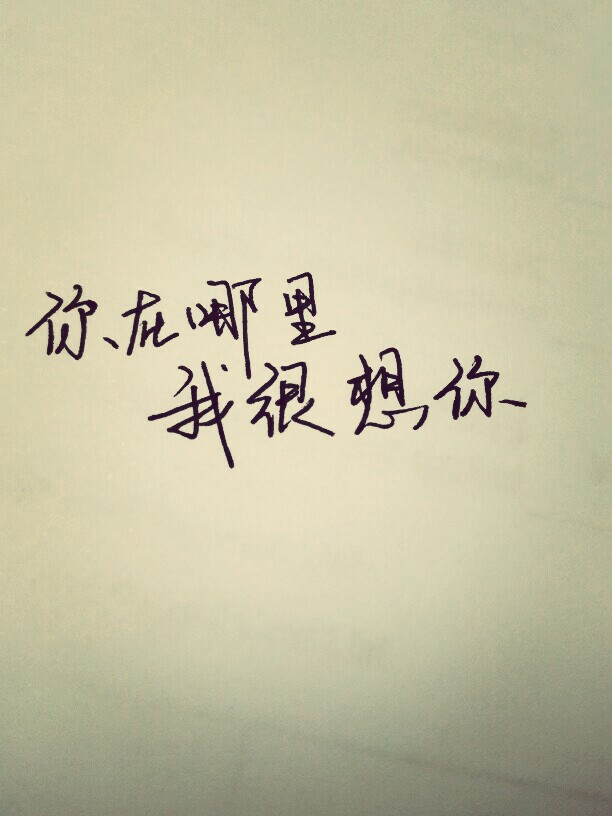 你在哪里
我很想你